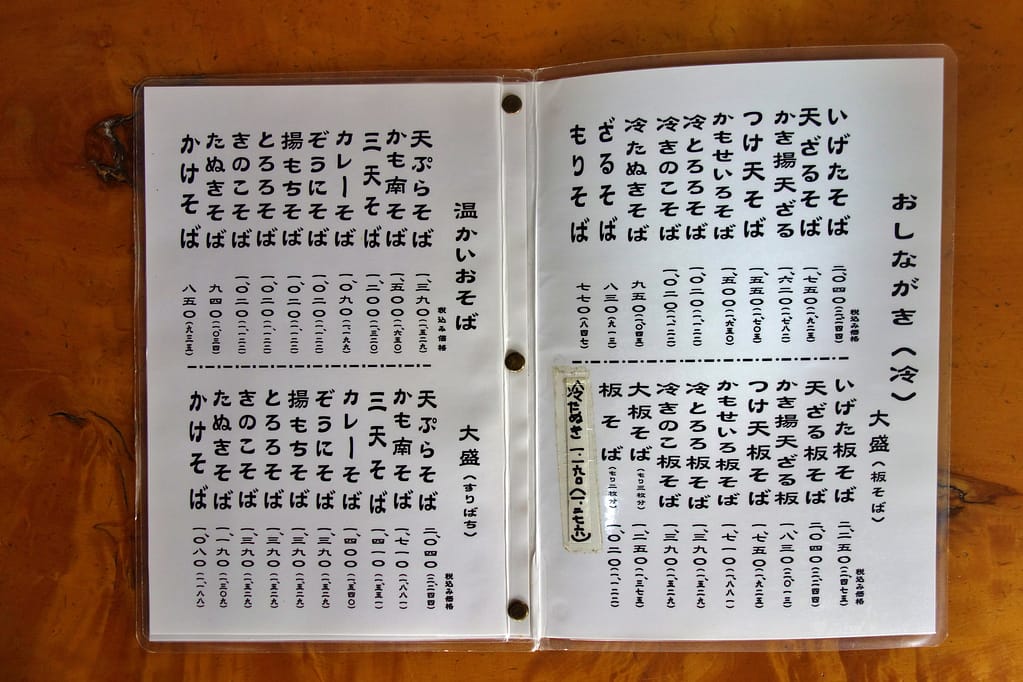 おしながき（冷）
税込み価格
いげたそば 二、〇四〇（二、二四四）
天ざるそば 一、七五〇（一、九二五）
かき揚天ざる 一、六二〇（一、七八二）
つけ天そば 一、五五〇（一、七〇五）
かもせいろそば 一、五〇〇（一、六五〇）
冷とろろそば 一、〇二〇（一、一二二）
冷きのこそば 一、〇二〇（一、一二二）
冷たぬきそば 九五〇（一、〇四五）
ざるそば 八三〇（九一三）
もりそば 七七〇（八四七）
大盛（板そば）
税込み価格
いげた板そば 二、二五〇（二、四七五）
天ざる板そば 二、〇四〇（二、二四四）
かき揚天ざる板 一、八三〇（二、〇一三）
つけ天板そば 一、七五〇（一、九二五）
かもせいろ板そば 一、七一〇（一、八八一）
冷とろろ板そば 一、三九〇（一、五二九）
冷きのこ板そば 一、三九〇（一、五二九）
大板そば（もり三枚分） 一、二五〇（一、三七五）
板そば（もり二枚分） 一、〇二〇（一、一二二）
冷たぬき 一、二九〇（一、二七六）
温かいおそば
税込み価格
天ぷらそば 一、三九〇（一、五二九）
かも南そば 一、五〇〇（一、六五〇）
三天そば 一、二〇〇（一、三二〇）
カレーそば 一、〇九〇（一、一九九）
ぞうにそば 一、〇二〇（一、一二二）
揚もちそば 一、〇二〇（一、一二二）
とろろそば 一、〇二〇（一、一二二）
きのこそば 一、〇二〇（一、一二二）
たぬきそば 九四〇（一、〇三四）
かけそば 八五〇（九三五）
大盛（すりばち）
税込み価格
天ぷらそば 二、〇四〇（二、二四四）
かも南そば 一、七一〇（一、八八一）
三天そば 一、四一〇（一、五五一）
カレーそば 一、四〇〇（一、五四〇）
ぞうにそば 一、三九〇（一、五二九）
揚もちそば 一、三九〇（一、五二九）
とろろそば 一、三九〇（一、五二九）
きのこそば 一、三九〇（一、五二九）
たぬきそば 一、一九〇（一、三〇九）
かけそば 一、〇八〇（一、一八八）